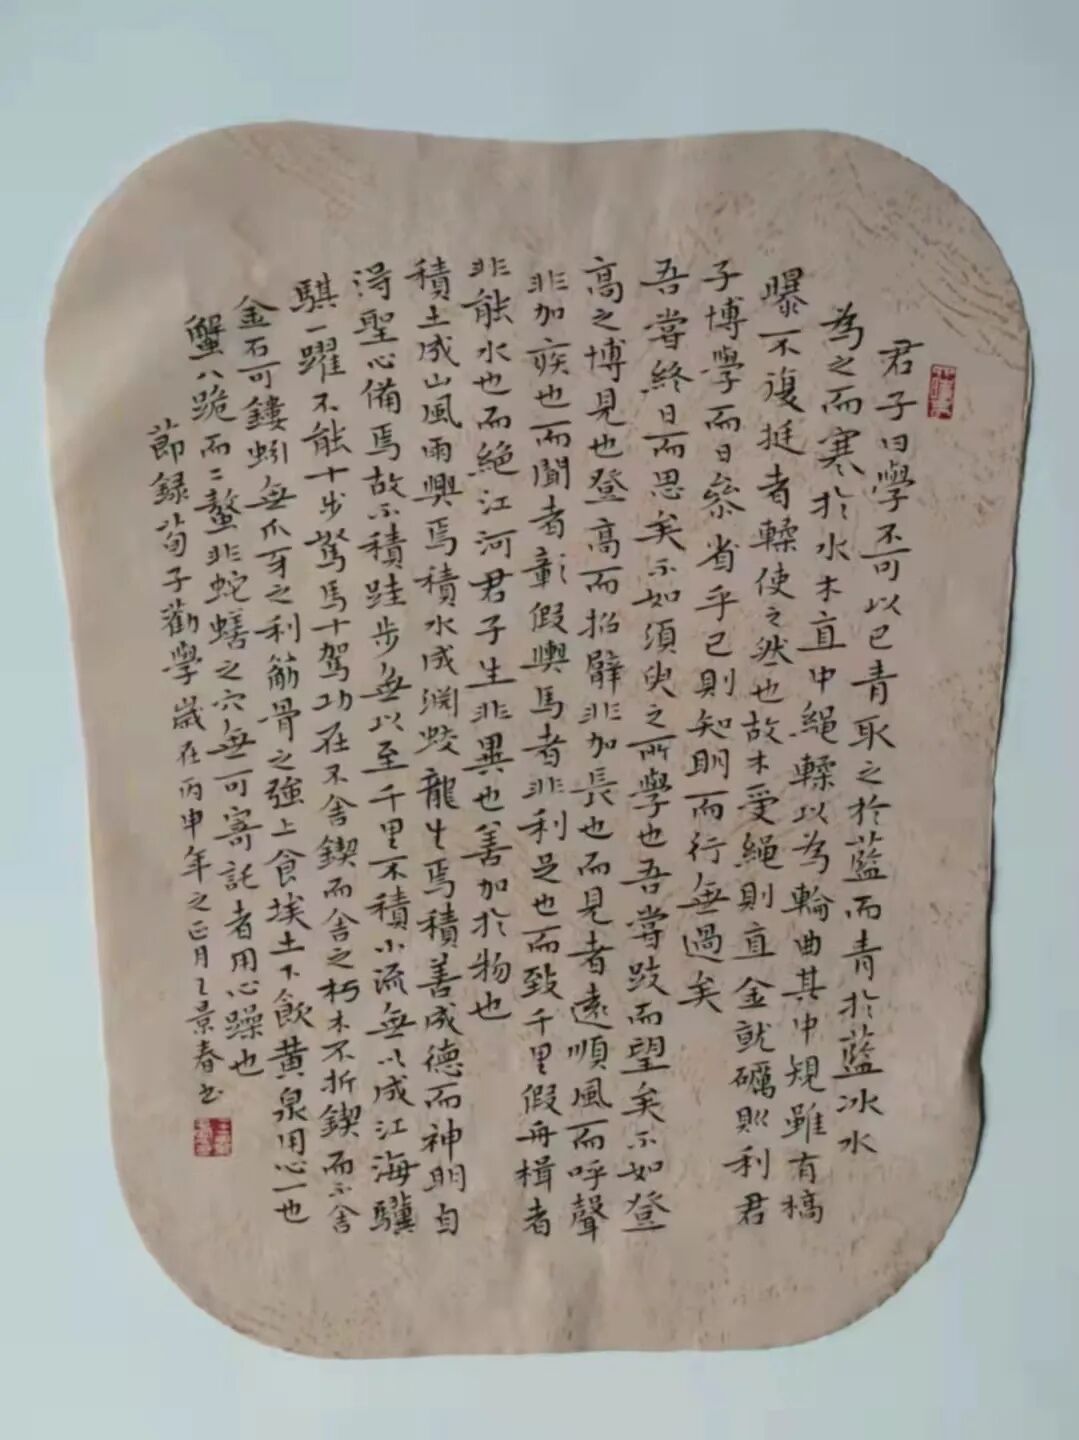 君子曰學不可以已青取之於藍而青於藍冰水
為之而寒於水木直中繩輮以為輪曲其中規雖有槁
曝不復挺者輮使之然也故木受繩則直金就礪則利君
子博學而日參省乎己則知明而行無過矣
吾嘗終日而思矣不如須臾之所學也吾嘗跂而望矣不如登
高之博見也登高而招臂非加長也而見者遠順風而呼聲
非加疾也而聞者彰假輿馬者非利足也而致千里假舟楫者
非能水也而絕江河君子生非異也善加於物也
積土成山風雨興焉積水成淵蛟龍生焉積善成德而神明自
得聖心備焉故不積跬步無以至千里不積小流無以成江海騏
騏一躍不能十步駑馬十駕功在不舍鍥而舍之朽木不折鍥而不舍
金石可鏤蚓無爪牙之利筋骨之強上食埃土下飲黃泉用心一也
蟹八跪而二螯非蛇蟮之穴無可寄託者用心躁也
節錄荀子勸學歲在丙申年之正月王景春書